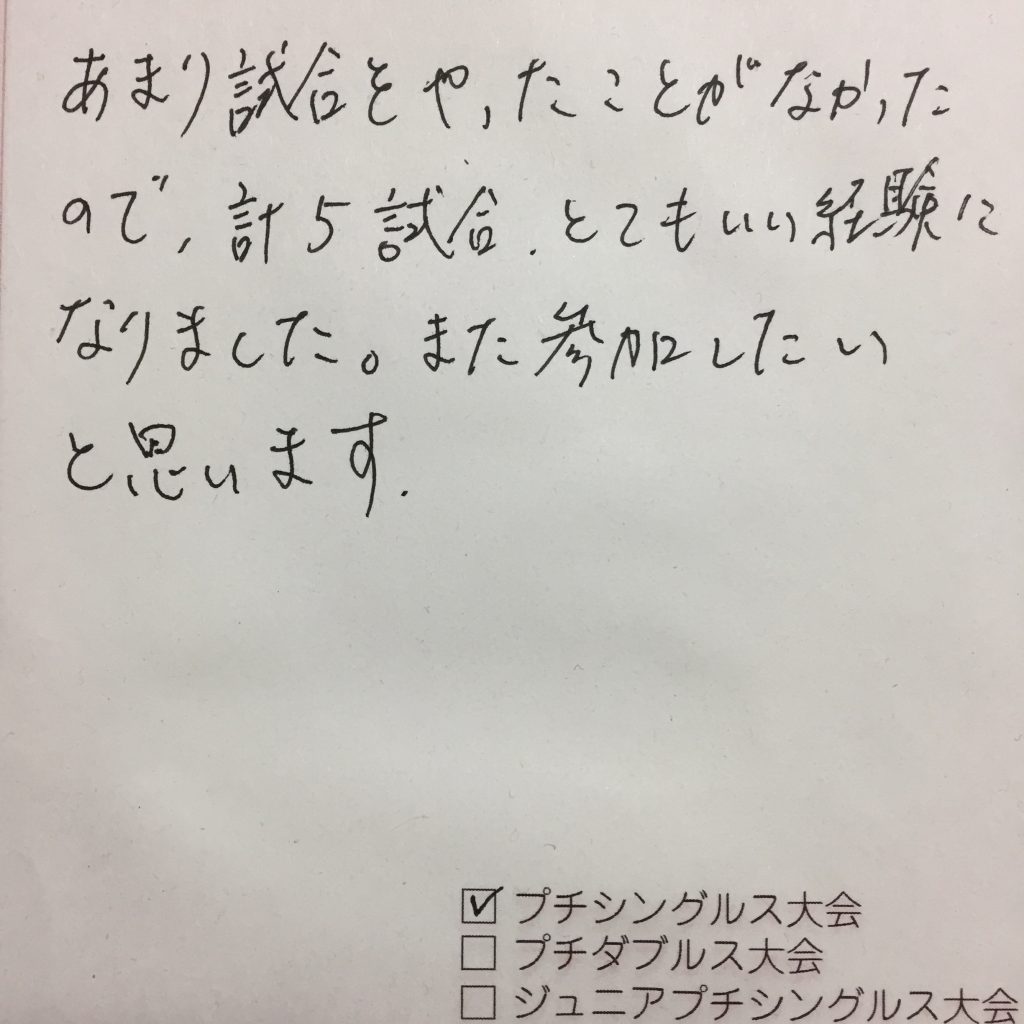 あまり試合をやったことがなかった
ので、計5試合、とてもいい経験に
なりました。また参加したい
と思います.
☑ プチシングルス大会
□ プチダブルス大会
□ ジュニアプチシングルス大会